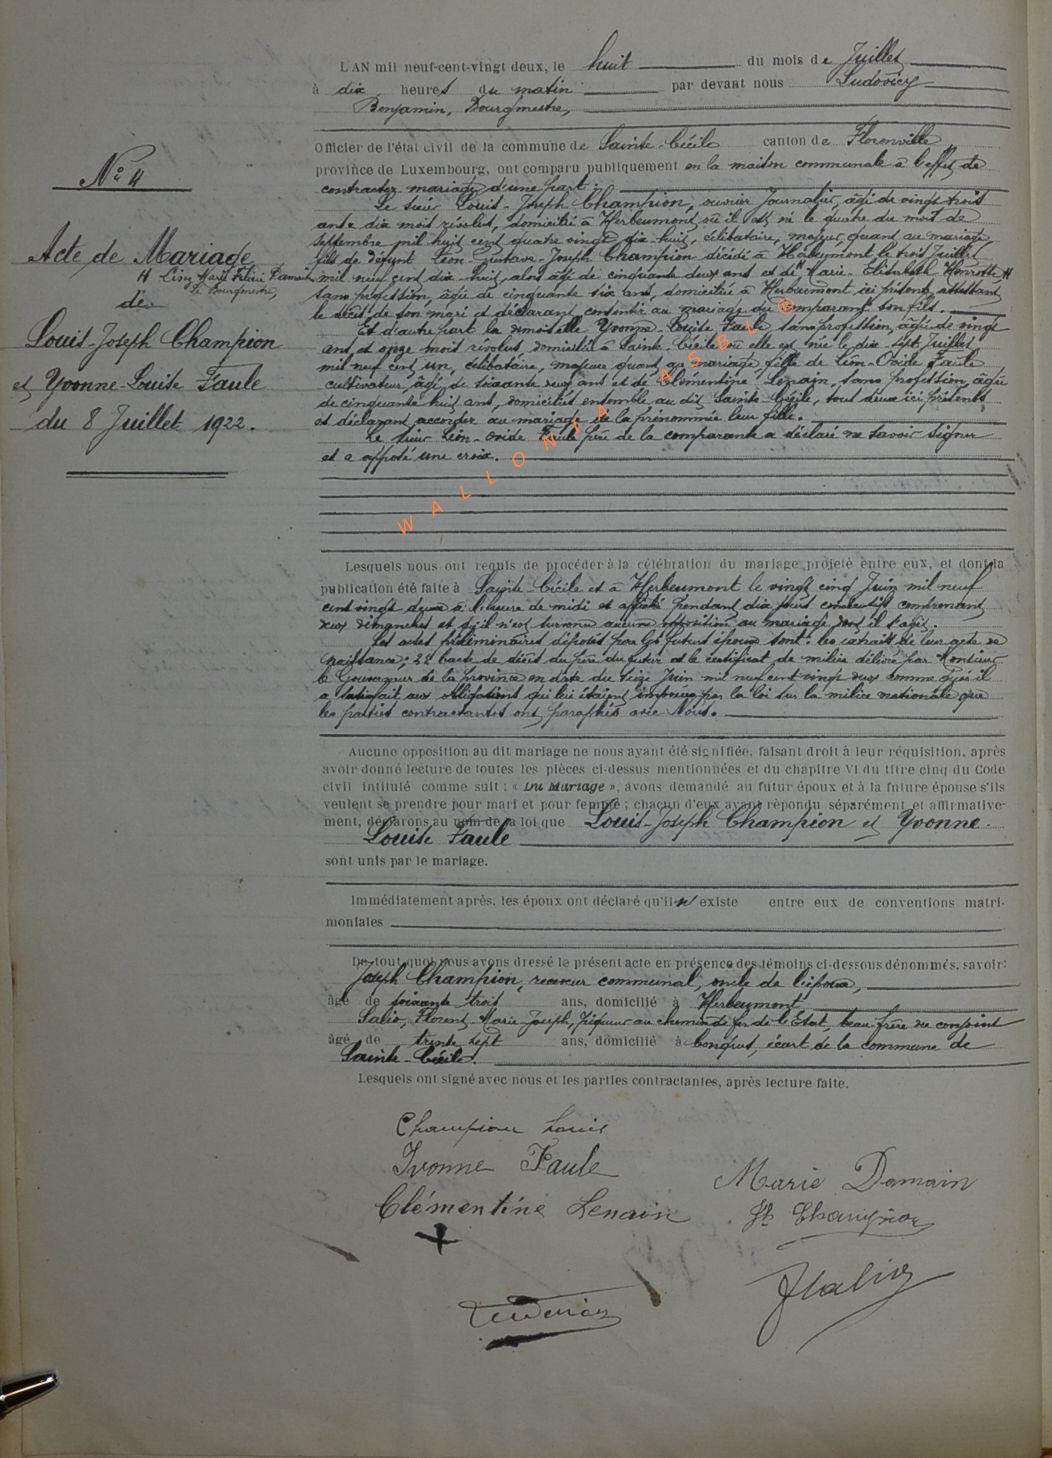 N° 4
Acte de Mariage
de
Louis-Joseph Champion
et Yvonne-Louise Faule
du 8 Juillet 1922.
Le Bourgmestre,
L'AN mil neuf-cent-vingt deux, le huit du mois de Juillet
à dix heures du matin par devant nous Ludovicy
Benjamin, Bourgmestre,
Officier de l'état civil de la commune de Sainte-Cécile canton de Florenville
province de Luxembourg, ont comparu publiquement en la maison communale à l'effet de
contracter mariage d'une part :
Le sieur Louis-Joseph Champion, ouvrier journalier, âgé de vingt trois
ans et dix mois révolus, domicilié à Herbeumont où il est né le quatre du mois de
septembre mil huit cent quatre vingt dix-huit, célibataire, majeur quant au mariage,
fils de défunt Léon Gustave-Joseph Champion décédé à Herbeumont le trois Juillet
mil neuf cent dix-huit, alors âgé de cinquante deux ans et de Marie-Elisabeth
sans profession, âgée de cinquante six ans, domiciliée à Herbeumont ici présente, attestant
le décès de son mari et déclarant consentir au mariage du comparant son fils.
Et d'autre part la demoiselle Yvonne-Louise Faule sans profession, âgée de vingt
ans et onze mois révolus, domiciliée à Sainte-Cécile où elle est née le dix-sept Juillet
mil neuf cent un, célibataire, majeure quant au mariage fille de Léon-Ovide Faule
cultivateur âgé de soixante deux ans et de Clémentine Lenain, sans profession, âgée
de cinquante huit ans, domiciliés ensemble au dit Sainte-Cécile, tous deux ici présents
et déclarant accorder au mariage de la prénommée leur fille.
Le sieur Léon-Ovide Faule père de la comparante a déclaré ne savoir signer
et a apposé une croix.
WALLONIA ASBL ©
Lesquels nous ont requis de procéder à la célébration du mariage projeté entre eux, et dont la
publication été faite à Sainte-Cécile et à Herbeumont le vingt cinq Juin mil neuf
cent vingt deux à l'heure de midi et affiché pendant dix jours consécutifs comprenant
deux dimanches et qu'il n'est survenu aucune opposition au mariage dont il s'agit.
Les actes préliminaires déposés par les futurs époux sont : les extraits de leur acte de
naissance; 2° l'acte de décès du père du futur et le certificat de milice délivré par Monsieur
le Gouverneur de la province en date du seize Juin mil neuf cent vingt deux comme quoi il
a satisfait aux obligations qui lui étaient imposées par la loi sur la milice nationale que
les parties contractantes ont paraphés avec Nous.
Aucune opposition au dit mariage ne nous ayant été signifiée, faisant droit à leur réquisition, après
avoir donné lecture de toutes les pièces ci-dessus mentionnées et du chapitre VI du titre cinq du Code
civil intitulé comme suit : « Du Mariage », avons demandé au futur époux et à la future épouse s'ils
veulent se prendre pour mari et pour femme ; chacun d'eux ayant répondu séparément et affirmative-
ment, déclarons au nom de la loi que Louis-Joseph Champion et Yvonne-
Louise Faule
sont unis par le mariage.
Immédiatement après, les époux ont déclaré qu'il n'existe entre eux de conventions matri-
moniales
De tout quoi nous avons dressé le présent acte en présence des témoins ci-dessous dénommés, savoir:
Joseph Champion, receveur communal, oncle de l'époux,
âgé de soixante trois ans, domicilié à Herbeumont
Florent-Marie-Joseph, piqueur au chemin de fer de l'Etat, beau-frère du conjoint
âgé de trente sept ans, domicilié à Conques, écart de la commune de
Sainte-Cécile.
Lesquels ont signé avec nous et les parties contractantes, après lecture faite.
Champion Louis
Yvonne Faule
Marie Damain
Clémentine Lenain